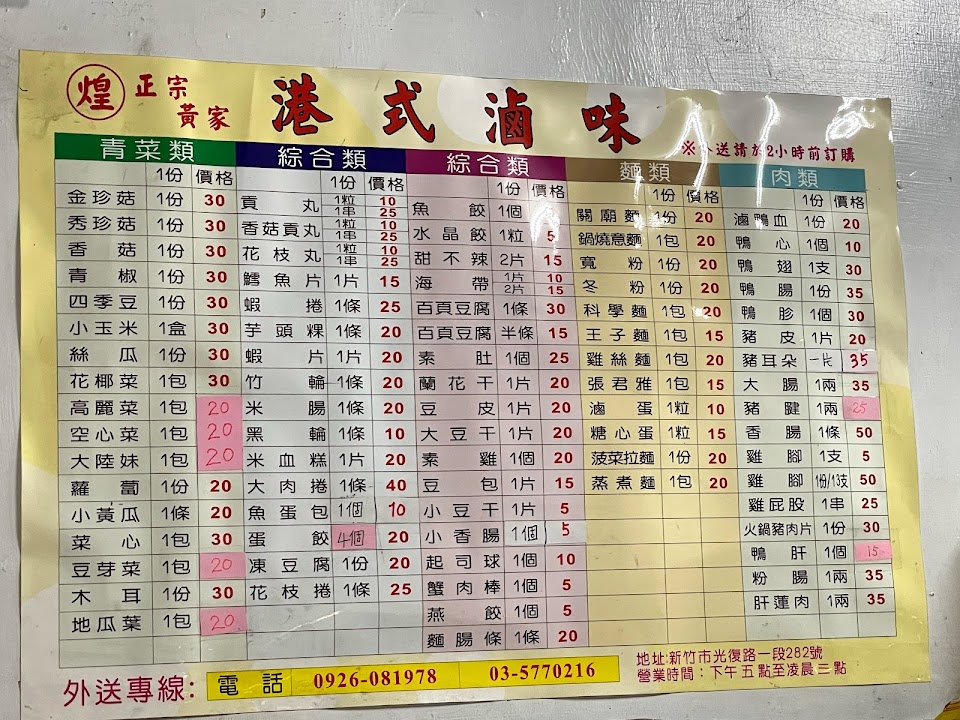 煌 正宗黃家 港式滷味
※外送請於2小時前訂購
青菜類
1份 價格
金珍菇 1份 30
秀珍菇 1份 30
香菇 1份 30
青椒 1份 30
四季豆 1份 30
小玉米 1盒 30
絲瓜 1份 30
花椰菜 1包 30
高麗菜 1包 20
空心菜 1包 20
大陸妹 1包 20
蘿蔔 1份 20
小黃瓜 1條 20
菜心 1包 30
豆芽菜 1包 20
木耳 1份 30
地瓜葉 1包 20
綜合類
1份 價格
貢丸 1粒 10
1串 25
香菇貢丸 1粒 10
1串 25
花枝丸 1粒 10
1串 25
鱈魚片 1片 15
蝦捲 1條 25
芋頭粿 1條 20
蝦片 1片 20
竹輪 1條 20
米腸 1條 20
黑輪 1條 10
米血糕 1片 20
大肉捲 1條 40
魚蛋包 1個 10
蛋餃 4個 20
凍豆腐 1份 20
花枝捲 1條 25
綜合類
1份 價格
魚餃 1個 5
水晶餃 1粒 5
甜不辣 2片 15
海帶 1片 10
2片 15
百頁豆腐 1條 30
百頁豆腐 半條 15
素肚 1個 25
蘭花干 1片 20
豆皮 1片 20
大豆干 1片 20
素雞 1個 20
豆包 1片 15
小豆干 1片 5
小香腸 1個 5
起司球 1個 10
蟹肉棒 1個 5
燕餃 1個 5
麵腸條 1條 20
麵類
1份 價格
關廟麵 1份 20
鍋燒意麵 1包 20
寬粉 1份 20
冬粉 1份 20
科學麵 1包 20
王子麵 1包 20
雞絲麵 1包 20
張君雅 1包 15
滷蛋 1粒 10
糖心蛋 1粒 15
菠菜拉麵 1份 20
蒸煮麵 1包 20
肉類
1份 價格
滷鴨血 1份 20
鴨心 1個 10
鴨翅 1支 30
鴨腸 1份 35
鴨胗 1個 30
豬皮 1片 20
豬耳朵 一片 35
大腸 1兩 35
豬腱 1兩 25
香腸 1條 50
雞腳 1支 5
雞腳 1份/13支 50
雞屁股 1串 25
火鍋豬肉片 1份 30
鴨肝 1個 15
粉腸 1兩 35
肝蓮肉 1兩 35
外送專線: 電話 0926-081978 03-5770216
地址:新竹市光復路一段282號
營業時間:下午五點至凌晨三點